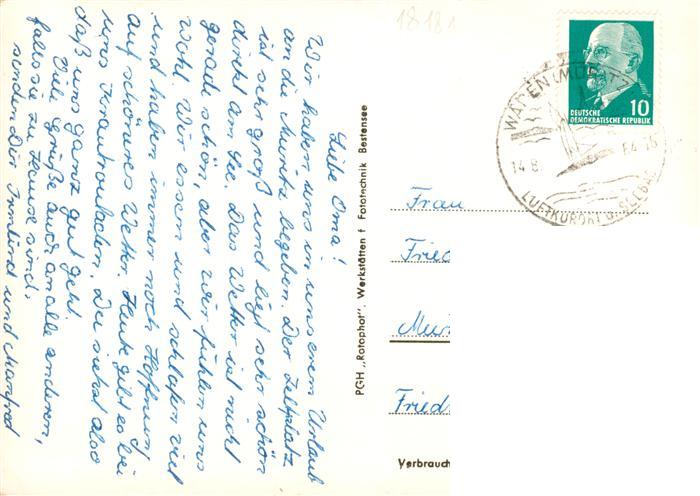 Liebe Oma!
Wir haben uns in unserem Urlaub
an die Müritz begeben. Der Zeltplatz
ist sehr groß und liegt sehr schön
direkt am See. Das Wetter ist nicht
gerade schön, aber wir fühlen uns
wohl. Wir essen und schlafen viel
und haben immer noch Hoffnung
auf schöneres Wetter. Heute gibt es bei
uns Krautrouladen. Du siehst also
daß uns ganz gut geht.
Viele Grüße auch an alle anderen,
falls sie zu Hause sind,
senden Dir Irmlind und Manfred
PGH „Rotophot", Werkstätten f Fototechnik Bestensee
1818
10
DEUTSCHE
DEMOKRATISCHE REPUBLIK
WAREN (MÜRITZ)
14.8. 64-16
LUFTKURORT U. SEEBAD
Frau
Fried
Friedr
Verbrauch